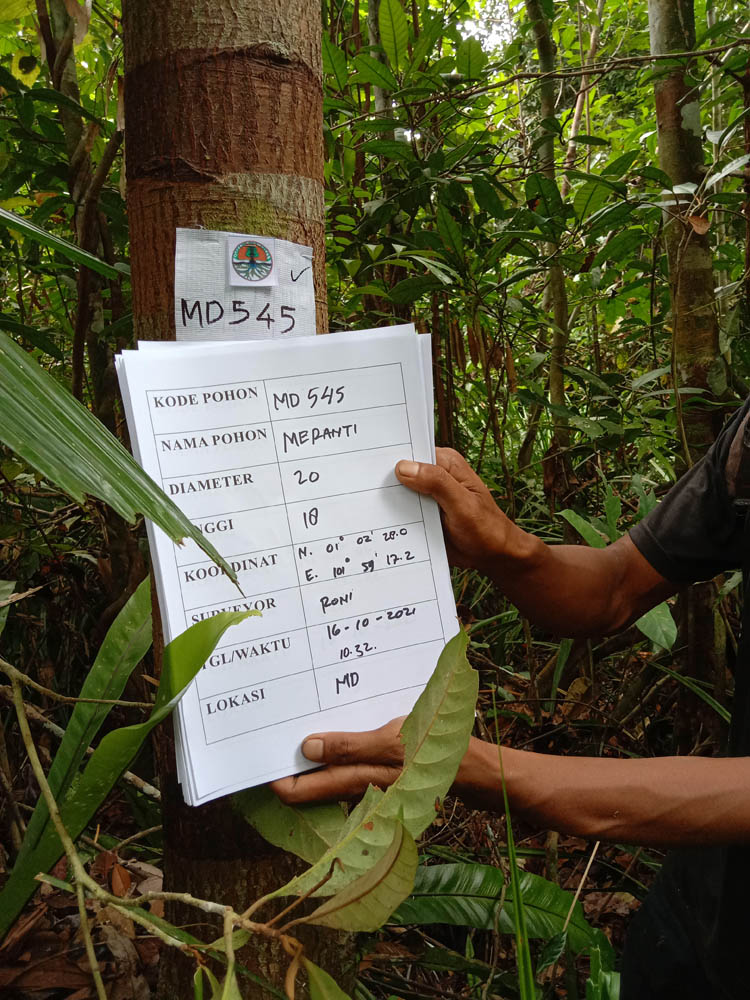 MD545
KODE POHON MD 545
NAMA POHON MERANTI
DIAMETER 20
NGGI 18
KOORDINAT N. 01° 02' 28.0
E. 101° 59' 17.2
SURVEYOR RONI
TGL/WAKTU 16-10-2021
10.32.
LOKASI MD